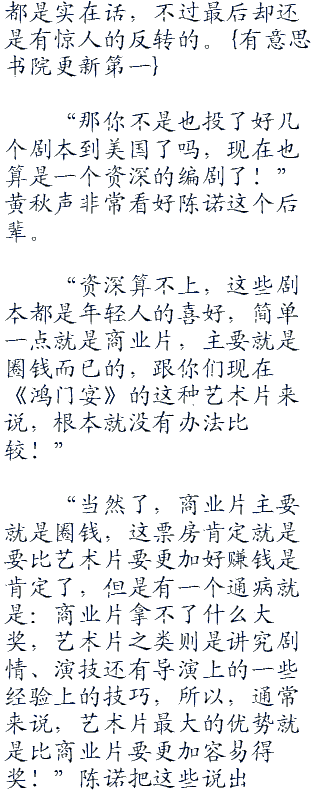 都是实在话，不过最后却还
是有惊人的反转的。{有意思
书院更新第一}
“那你不是也投了好几
个剧本到美国了吗，现在也
算是一个资深的编剧了！”
黄秋声非常看好陈诺这个后
辈。
“资深算不上，这些剧
本都是年轻人的喜好，简单
一点就是商业片，主要就是
圈钱而已的，跟你们现在
《鸿门宴》的这种艺术片来
说，根本就没有办法比
较！”
“当然了，商业片主要
就是圈钱，这票房肯定就是
要比艺术片要更加好赚钱是
肯定了，但是有一个通病就
是：商业片拿不了什么大
奖，艺术片之类则是讲究剧
情、演技还有导演上的一些
经验上的技巧，所以，通常
来说，艺术片最大的优势就
是比商业片要更加容易得
奖！”陈诺把这些说出